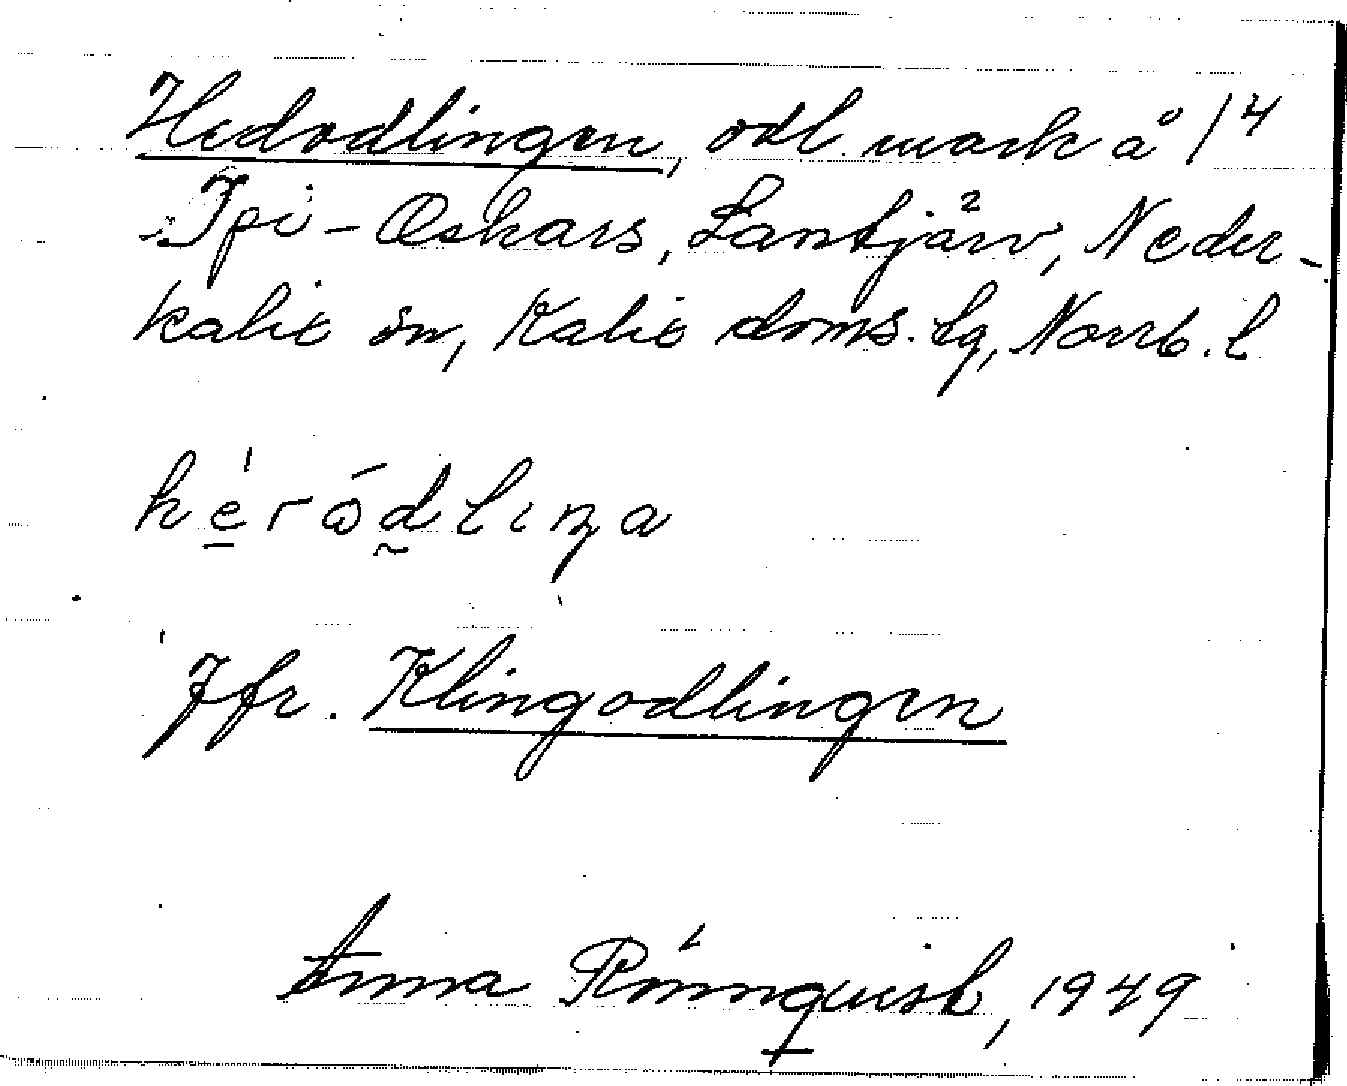 Hedodlingen, odl. mark å 1⁴
Ipi-Oskars, Lantjärv, Neder-
kalix sn, Kalix doms. lg, Norrb. l
heródlıŋa
Jfr. Klingodlingen
Anna Rönnqvist, 1949